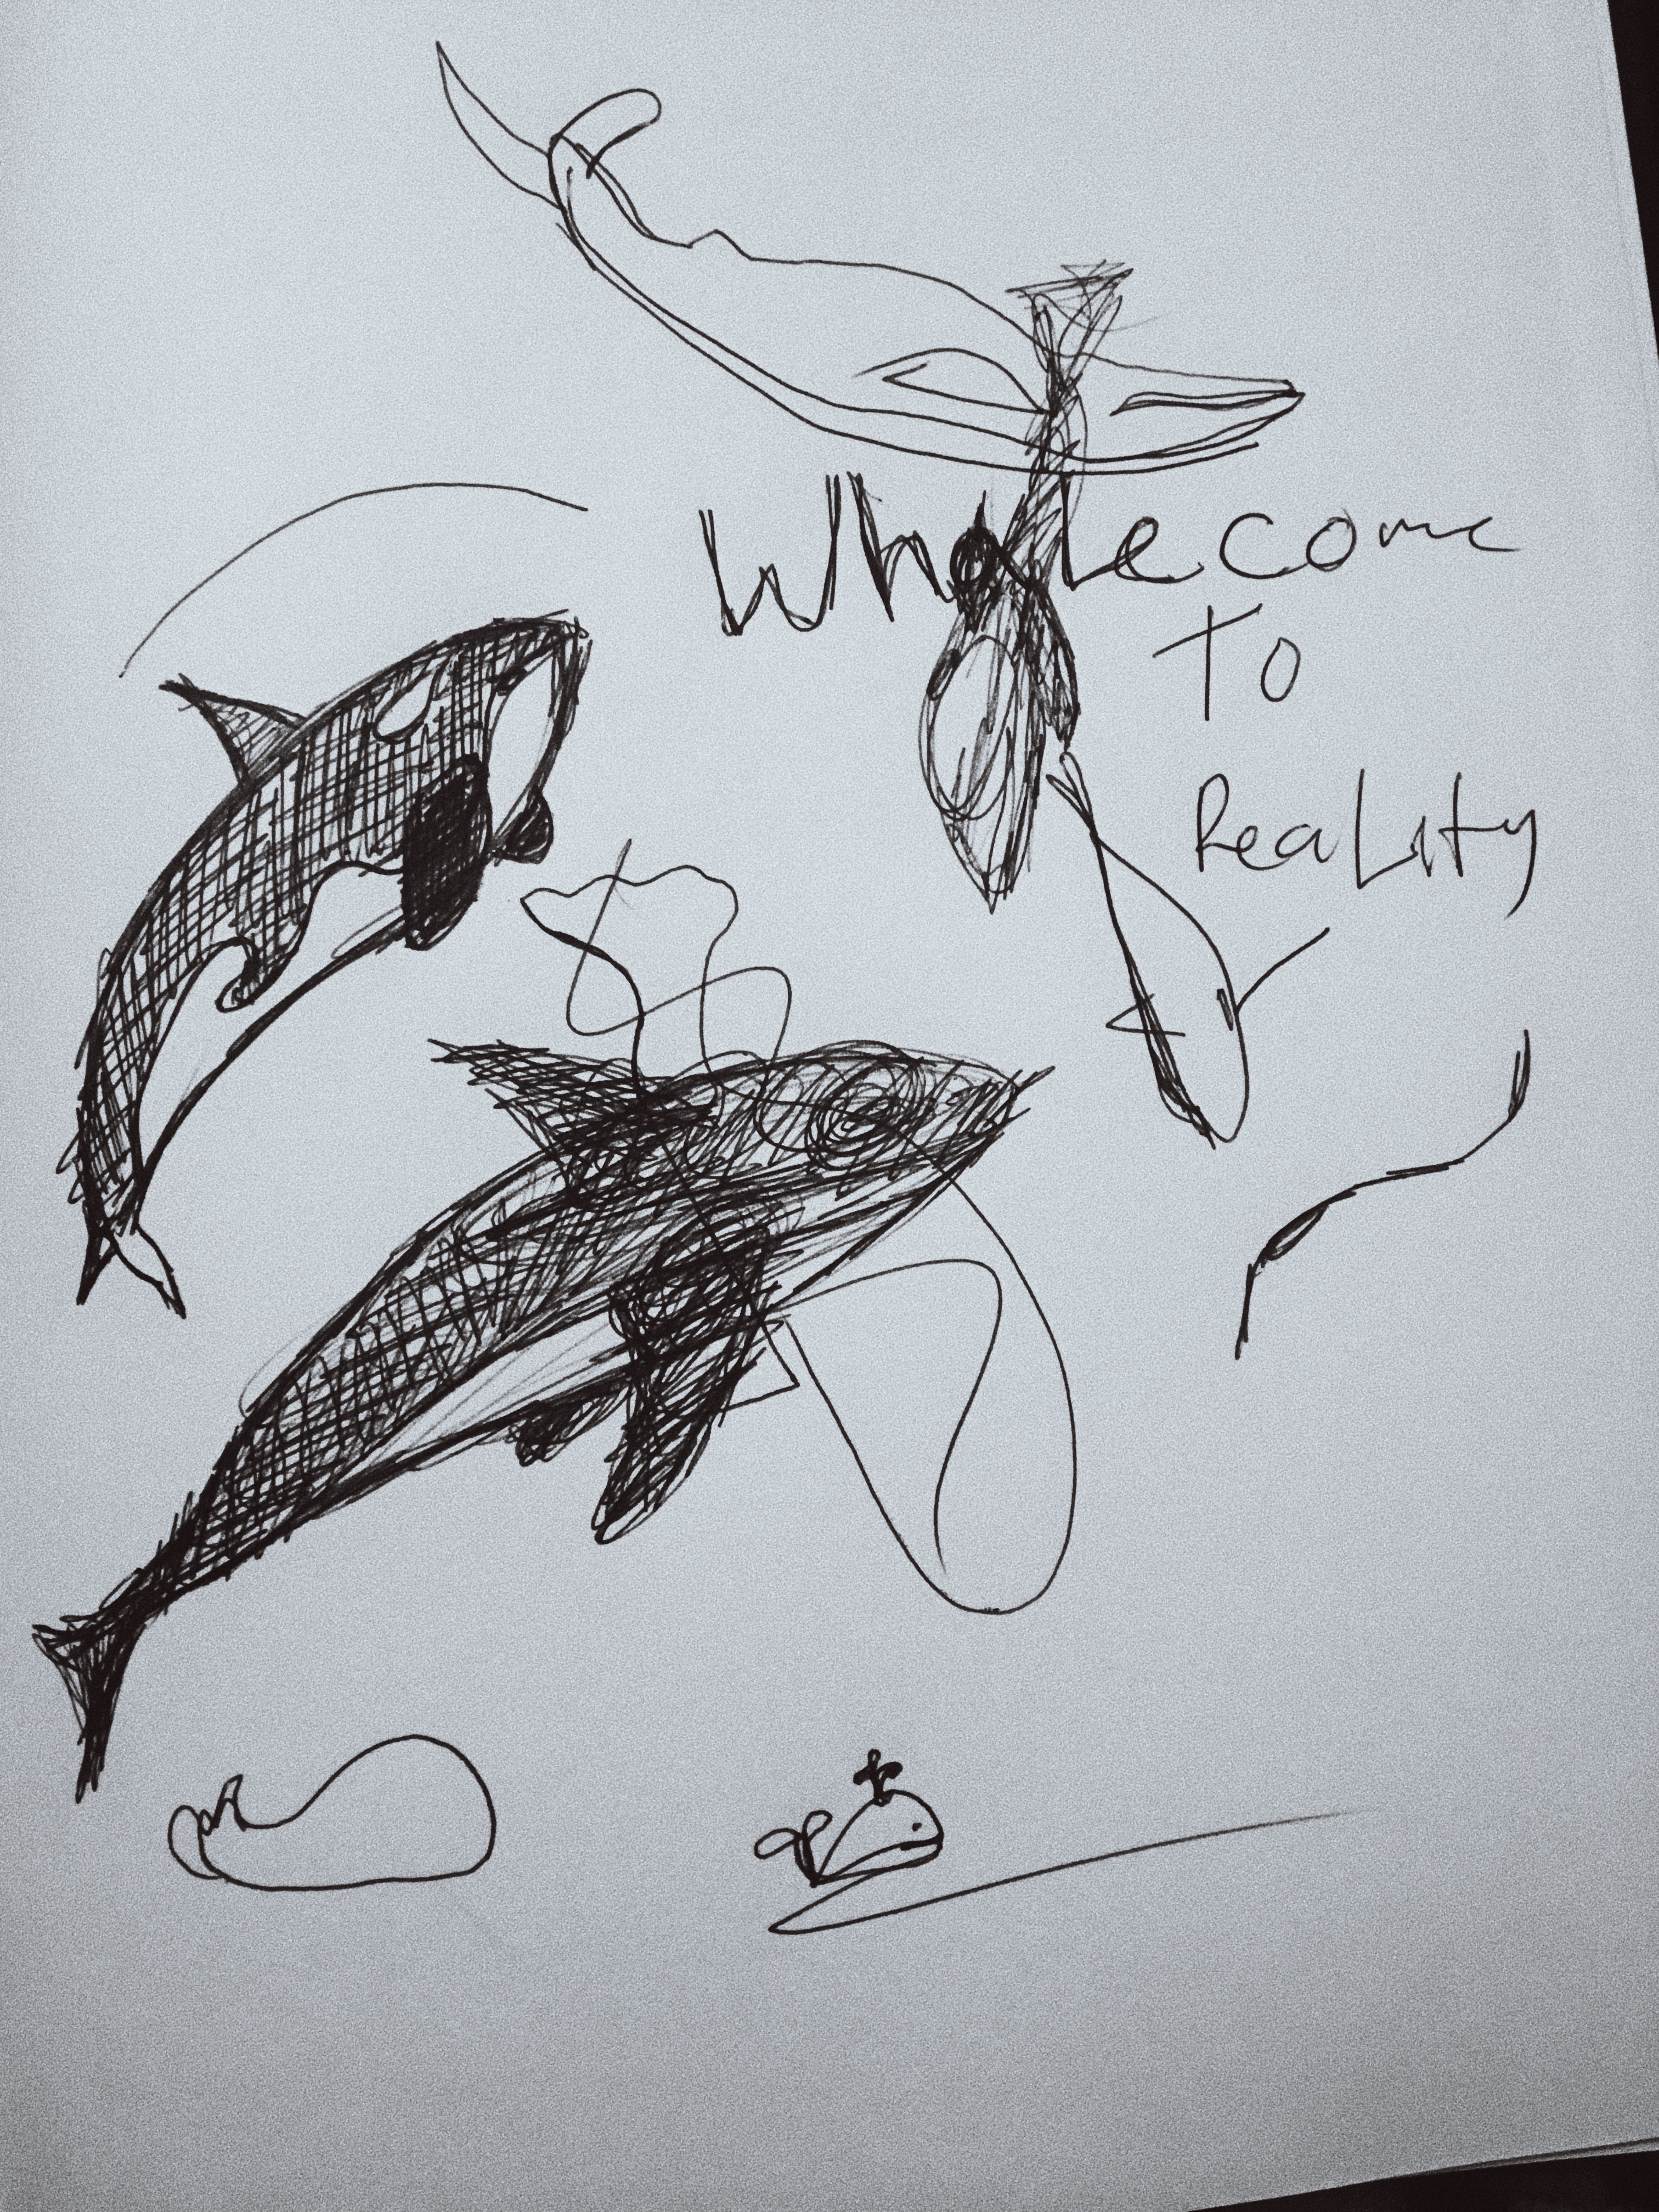 Whalecome
To
Reality